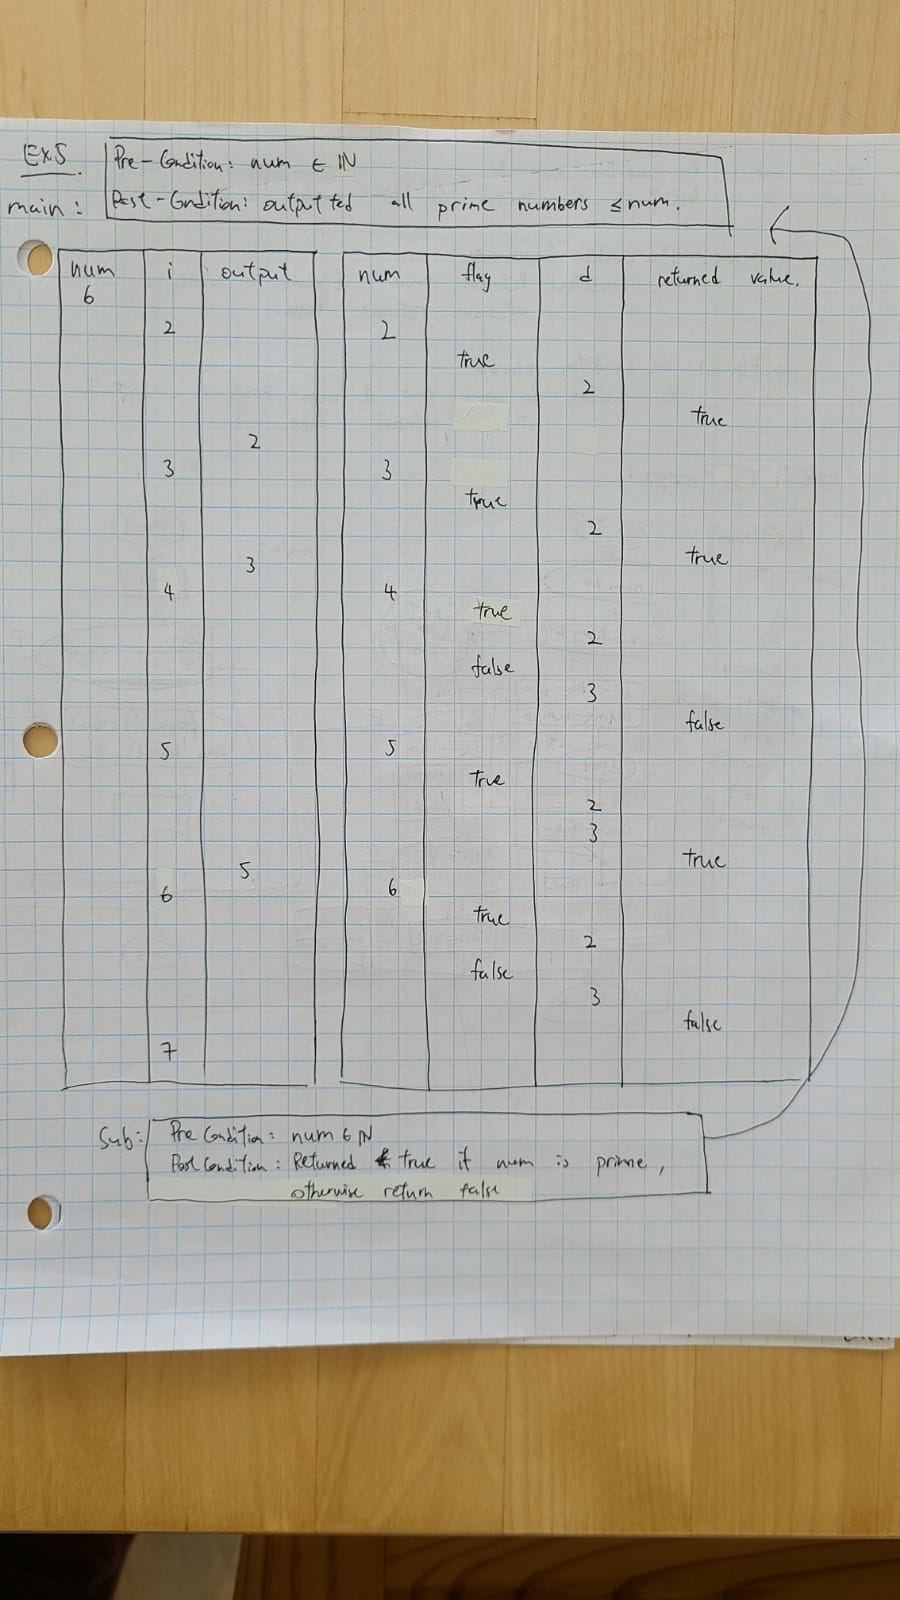 Ex5
Pre-Condition: num ∈ IN
main: Post-Condition: outputted all prime numbers ≤ num.
num i output num flag d returned value.
6
2 2
true
2
true
2
3 3
true
2
true
3
4 4
true
2
false
3
false
5 5
true
2
3
true
5
6 6
true
2
false
3
false
7
Sub: Pre Condition: num ∈ IN
Post Condition: Returned true if num is prime,
otherwise return false